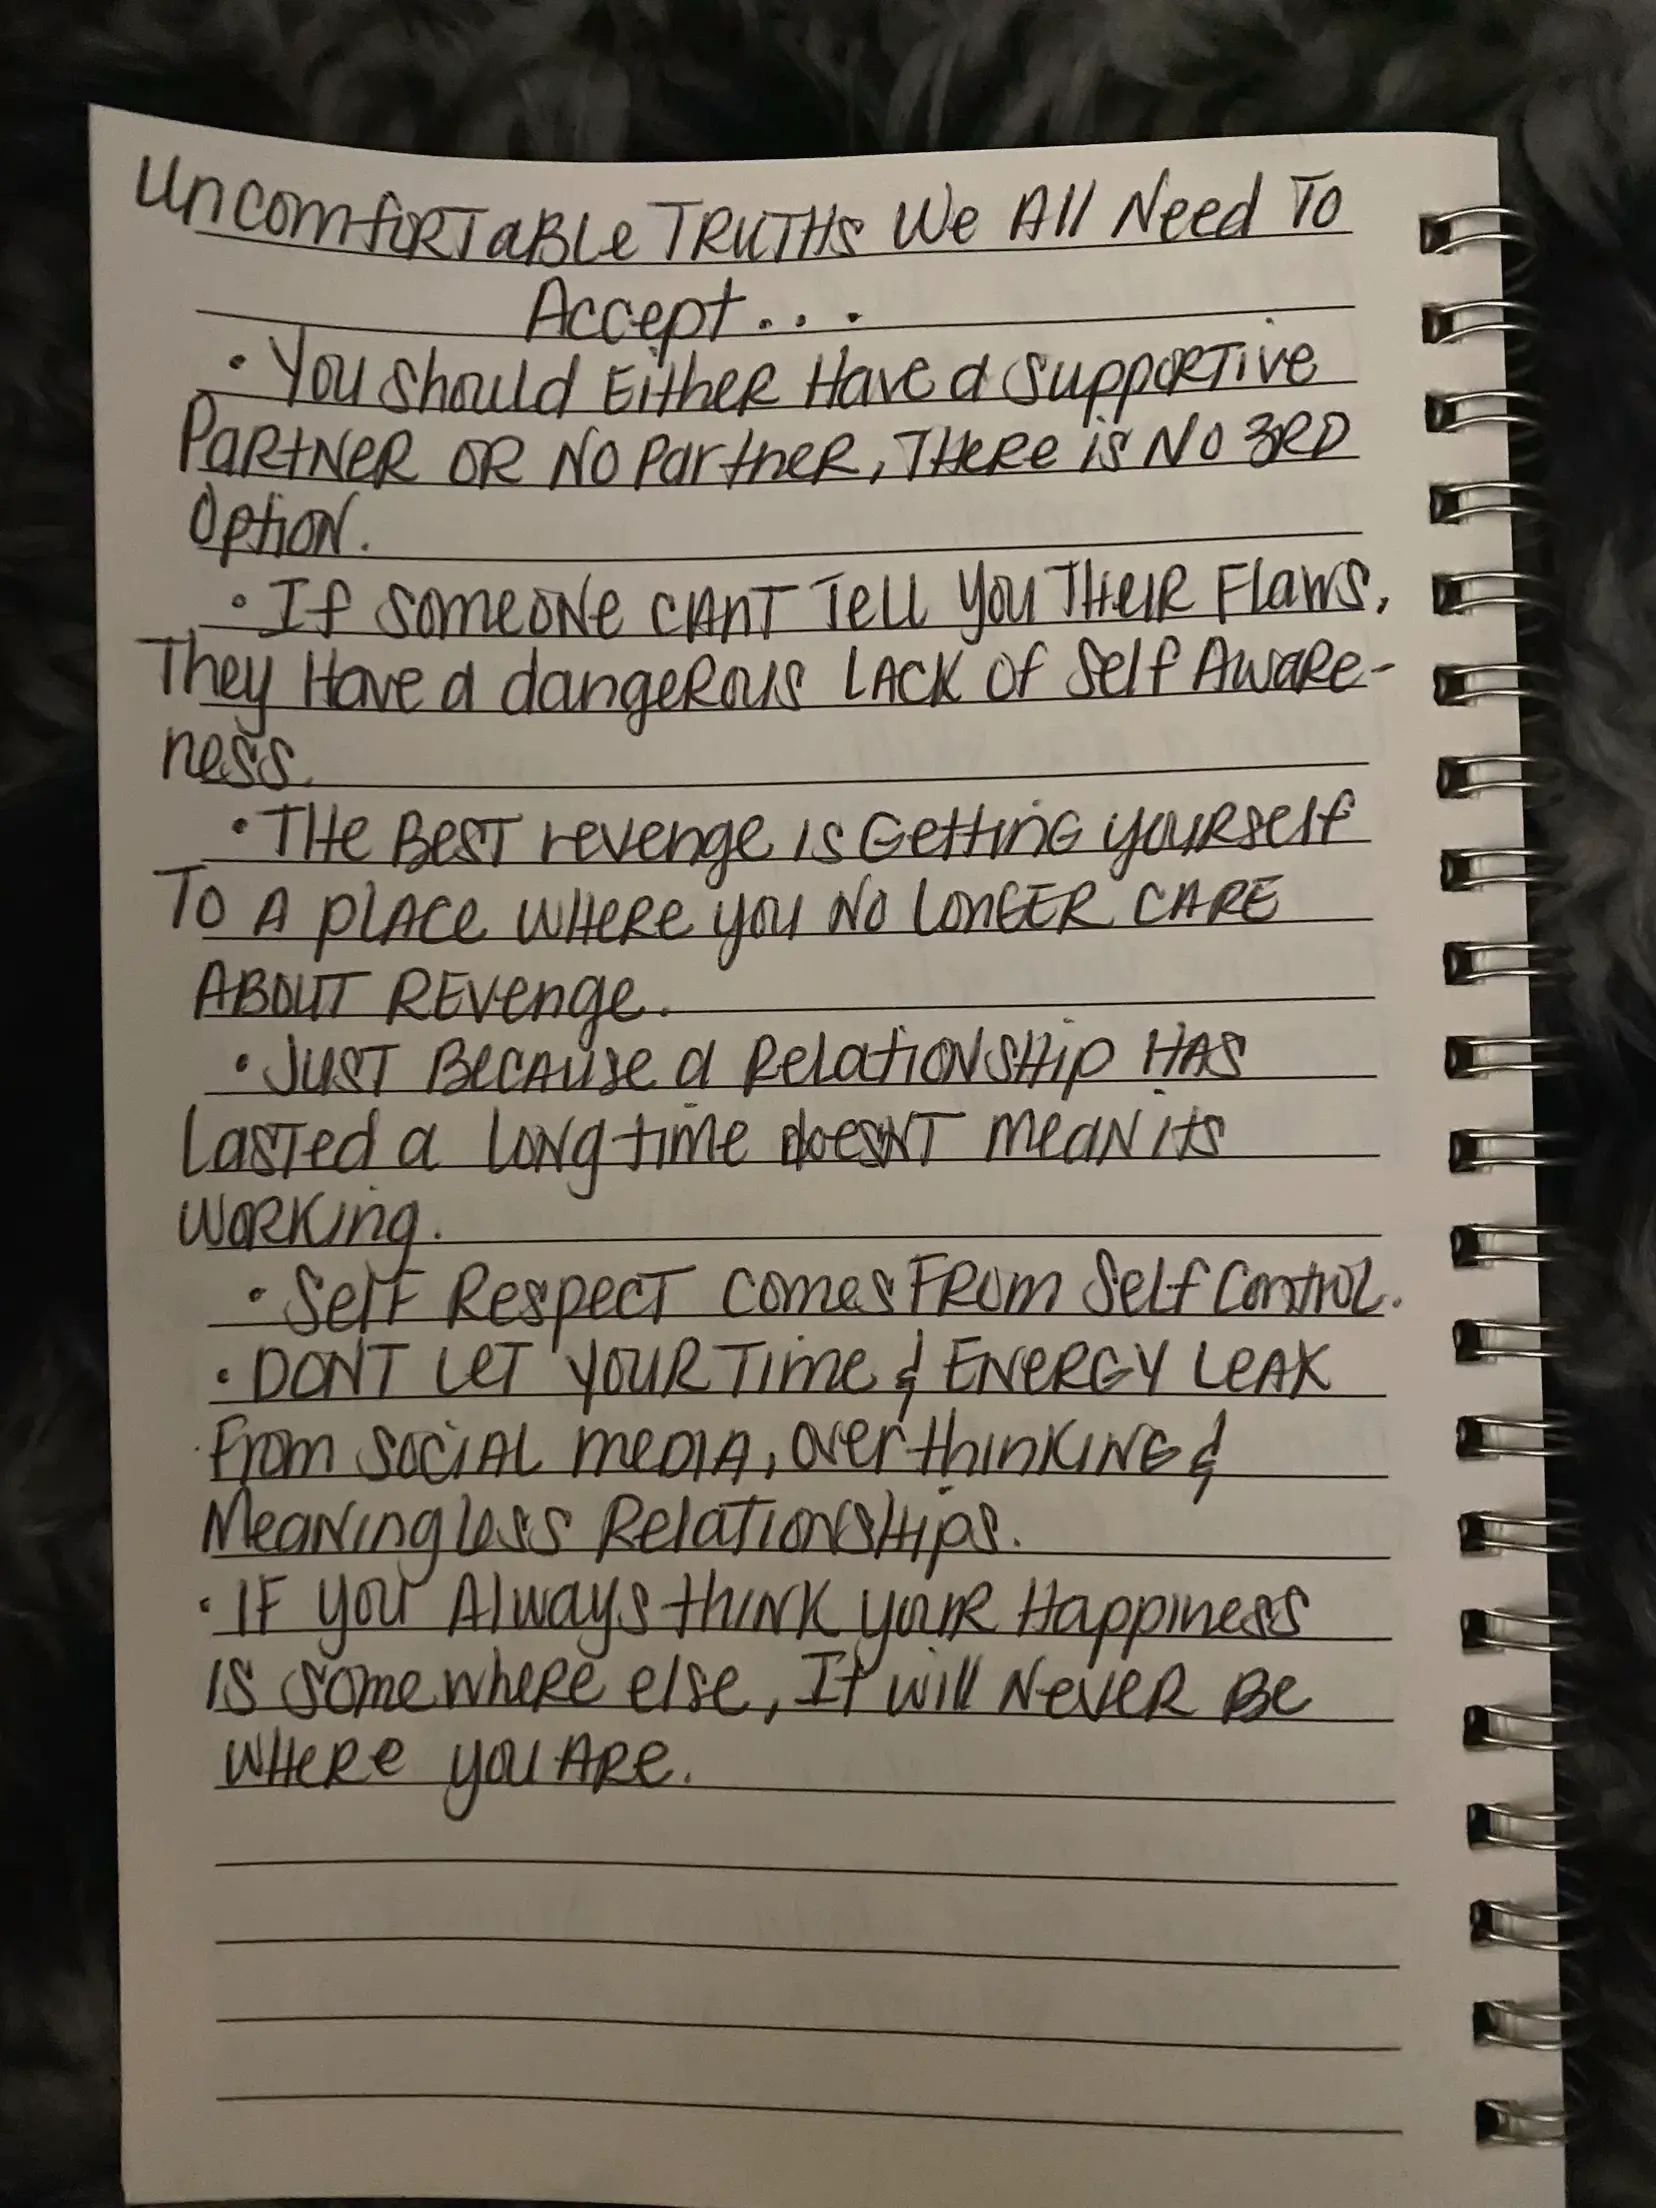 Uncomfortable Truths We All Need To
Accept...
• You should Either Have a supportive
Partner or no partner, There is no 3rd
option.
• If someone can't Tell you Their Flaws,
They Have a dangerous lack of self Aware-
ness.
• The Best revenge is Getting yourself
To a place where you no longer care
About Revenge.
• Just Because a Relationship Has
lasted a long time doesnt mean its
working.
• Self Respect comes From Self Control.
• Dont let your Time & Energy leak
From social media, over thinking &
Meaningless Relationships.
• If you Always think your Happiness
is somewhere else, It will never Be
where you Are.